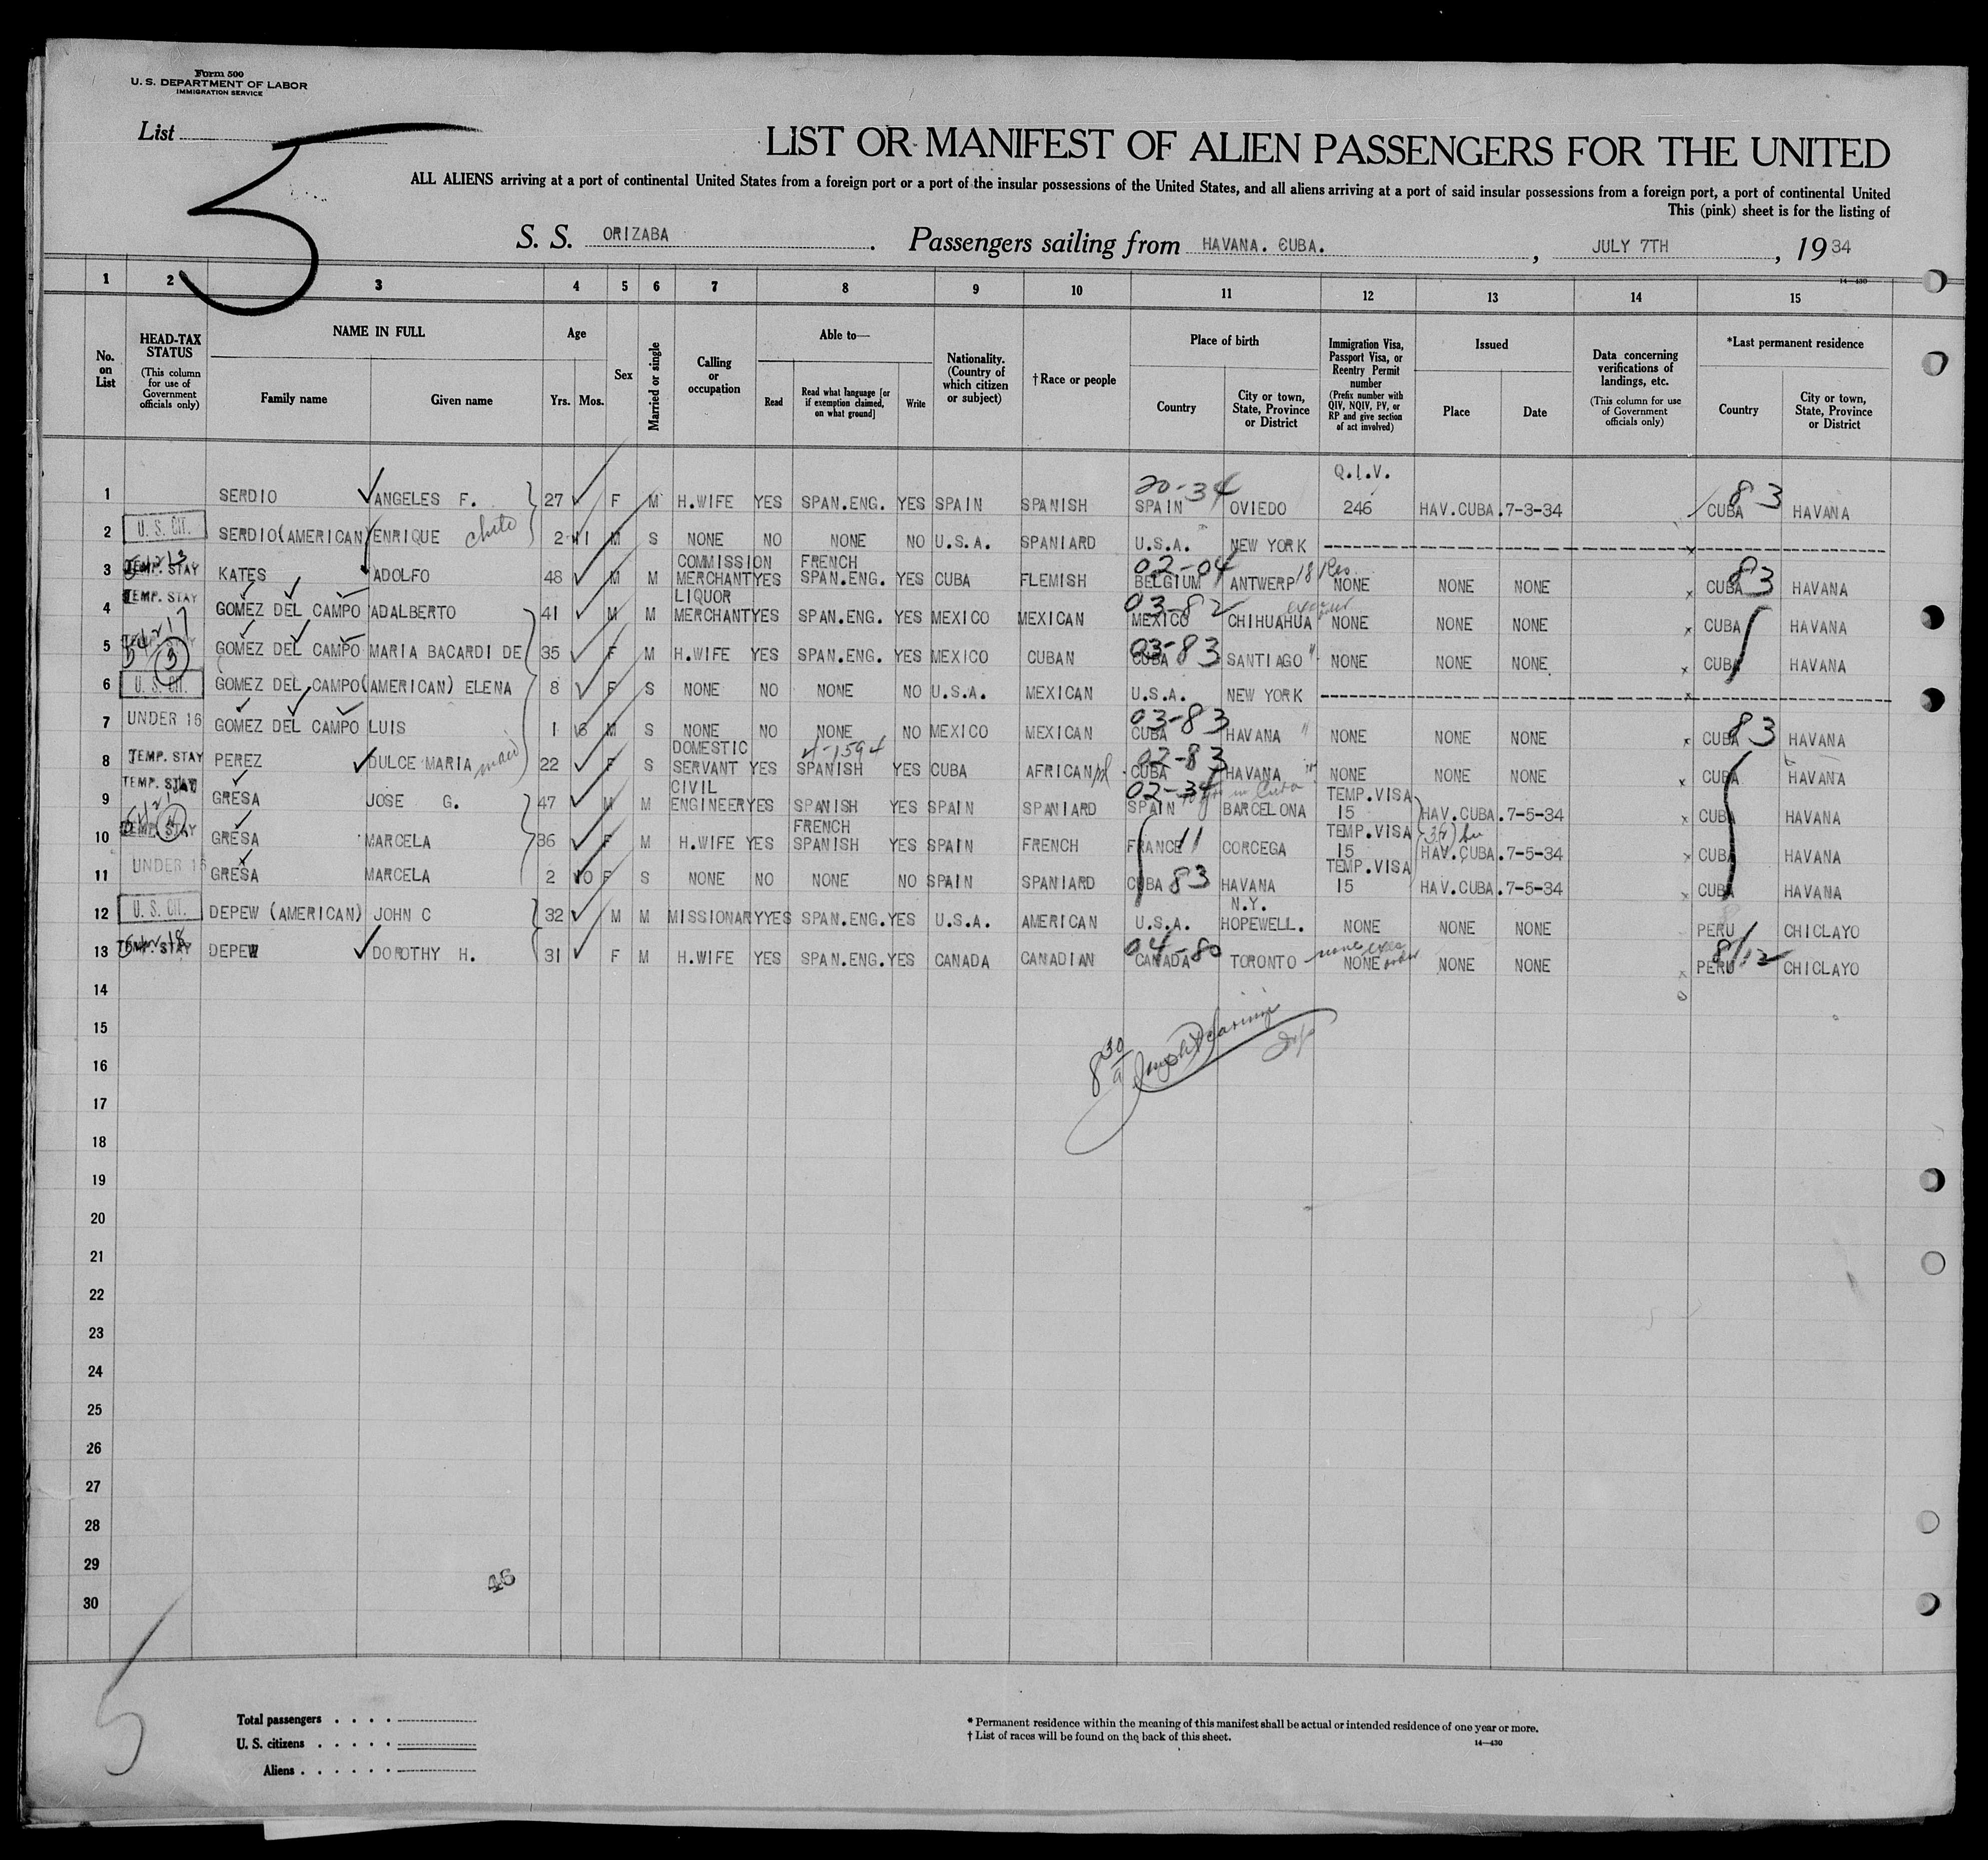 Form 500
U. S. DEPARTMENT OF LABOR
IMMIGRATION SERVICE
List 5
LIST OR MANIFEST OF ALIEN PASSENGERS FOR THE UNITED
ALL ALIENS arriving at a port of continental United States from a foreign port or a port of the insular possessions of the United States, and all aliens arriving at a port of said insular possessions from a foreign port, a port of continental United
This (pink) sheet is for the listing of
S. S. ORIZABA. Passengers sailing from HAVANA. CUBA., JULY 7TH, 1934
14—430
1 2 3 4 5 6 7 8 9 10 11 12 13 14 15
No. on List
HEAD-TAX STATUS (This column for use of Government officials only)
NAME IN FULL Family name Given name
Age Yrs. Mos.
Sex
Married or single
Calling or occupation
Able to— Read Read what language [or if exemption claimed, on what ground] Write
Nationality. (Country of which citizen or subject)
†Race or people
Place of birth Country City or town, State, Province or District
Immigration Visa, Passport Visa, or Reentry Permit number (Prefix number with QIV, NQIV, PV, or RP and give section of act involved)
Issued Place Date
Data concerning verifications of landings, etc. (This column for use of Government officials only)
*Last permanent residence Country City or town, State, Province or District
20-34 Q.I.V. 83
1 SERDIO ANGELES F. 27 F M H.WIFE YES SPAN.ENG. YES SPAIN SPANISH SPAIN OVIEDO 246 HAV.CUBA. 7-3-34 CUBA HAVANA
2 U. S. CIT. SERDIO(AMERICAN) ENRIQUE chito 2 11 M S NONE NO NONE NO U.S.A. SPANIARD U.S.A. NEW YORK
COMMISSION FRENCH 02-04 18 Res. 83
3 TEMP. STAY KATES ADOLFO 48 M M MERCHANT YES SPAN.ENG. YES CUBA FLEMISH BELGIUM ANTWERP NONE NONE NONE CUBA HAVANA
LIQUOR 03-82
4 TEMP. STAY GOMEZ DEL CAMPO ADALBERTO 41 M M MERCHANT YES SPAN.ENG. YES MEXICO MEXICAN MEXICO CHIHUAHUA NONE NONE NONE CUBA HAVANA
5 3 GOMEZ DEL CAMPO MARIA BACARDI DE 35 F M H.WIFE YES SPAN.ENG. YES MEXICO CUBAN 03-83 CUBA SANTIAGO " NONE NONE NONE CUBA HAVANA
6 U. S. CIT. GOMEZ DEL CAMPO(AMERICAN) ELENA 8 F S NONE NO NONE NO U.S.A. MEXICAN U.S.A. NEW YORK
03-83 83
7 UNDER 16 GOMEZ DEL CAMPO LUIS 1 6 M S NONE NO NONE NO MEXICO MEXICAN CUBA HAVANA " NONE NONE NONE CUBA HAVANA
DOMESTIC 4-1594 02-83
8 TEMP. STAY PEREZ DULCE MARIA maid 22 F S SERVANT YES SPANISH YES CUBA AFRICAN CUBA HAVANA " NONE NONE NONE CUBA HAVANA
CIVIL 02-34 in Cuba TEMP.VISA
9 TEMP. STAY GRESA JOSE G. 47 M M ENGINEER YES SPANISH YES SPAIN SPANIARD SPAIN BARCELONA 15 HAV.CUBA. 7-5-34 CUBA HAVANA
FRENCH TEMP.VISA
10 TEMP. STAY GRESA MARCELA 36 F M H.WIFE YES SPANISH YES SPAIN FRENCH FRANCE 11 CORCEGA 15 HAV.CUBA. 7-5-34 CUBA HAVANA
TEMP.VISA
11 UNDER 16 GRESA MARCELA 2 10 F S NONE NO NONE NO SPAIN SPANIARD CUBA 83 HAVANA 15 HAV.CUBA. 7-5-34 CUBA HAVANA
N.Y.
12 U. S. CIT. DEPEW (AMERICAN) JOHN C 32 M M MISSIONARY YES SPAN.ENG. YES U.S.A. AMERICAN U.S.A. HOPEWELL. NONE NONE NONE PERU CHICLAYO
04-80 8/12
13 TEMP. STAY DEPEW DOROTHY H. 31 F M H.WIFE YES SPAN.ENG. YES CANADA CANADIAN CANADA TORONTO NONE NONE NONE PERU CHICLAYO
14
15
8 30/a
16
17
18
19
20
21
22
23
24
25
26
27
28
29
46
30
5
Total passengers
U. S. citizens
Aliens
* Permanent residence within the meaning of this manifest shall be actual or intended residence of one year or more.
† List of races will be found on the back of this sheet.
14—430